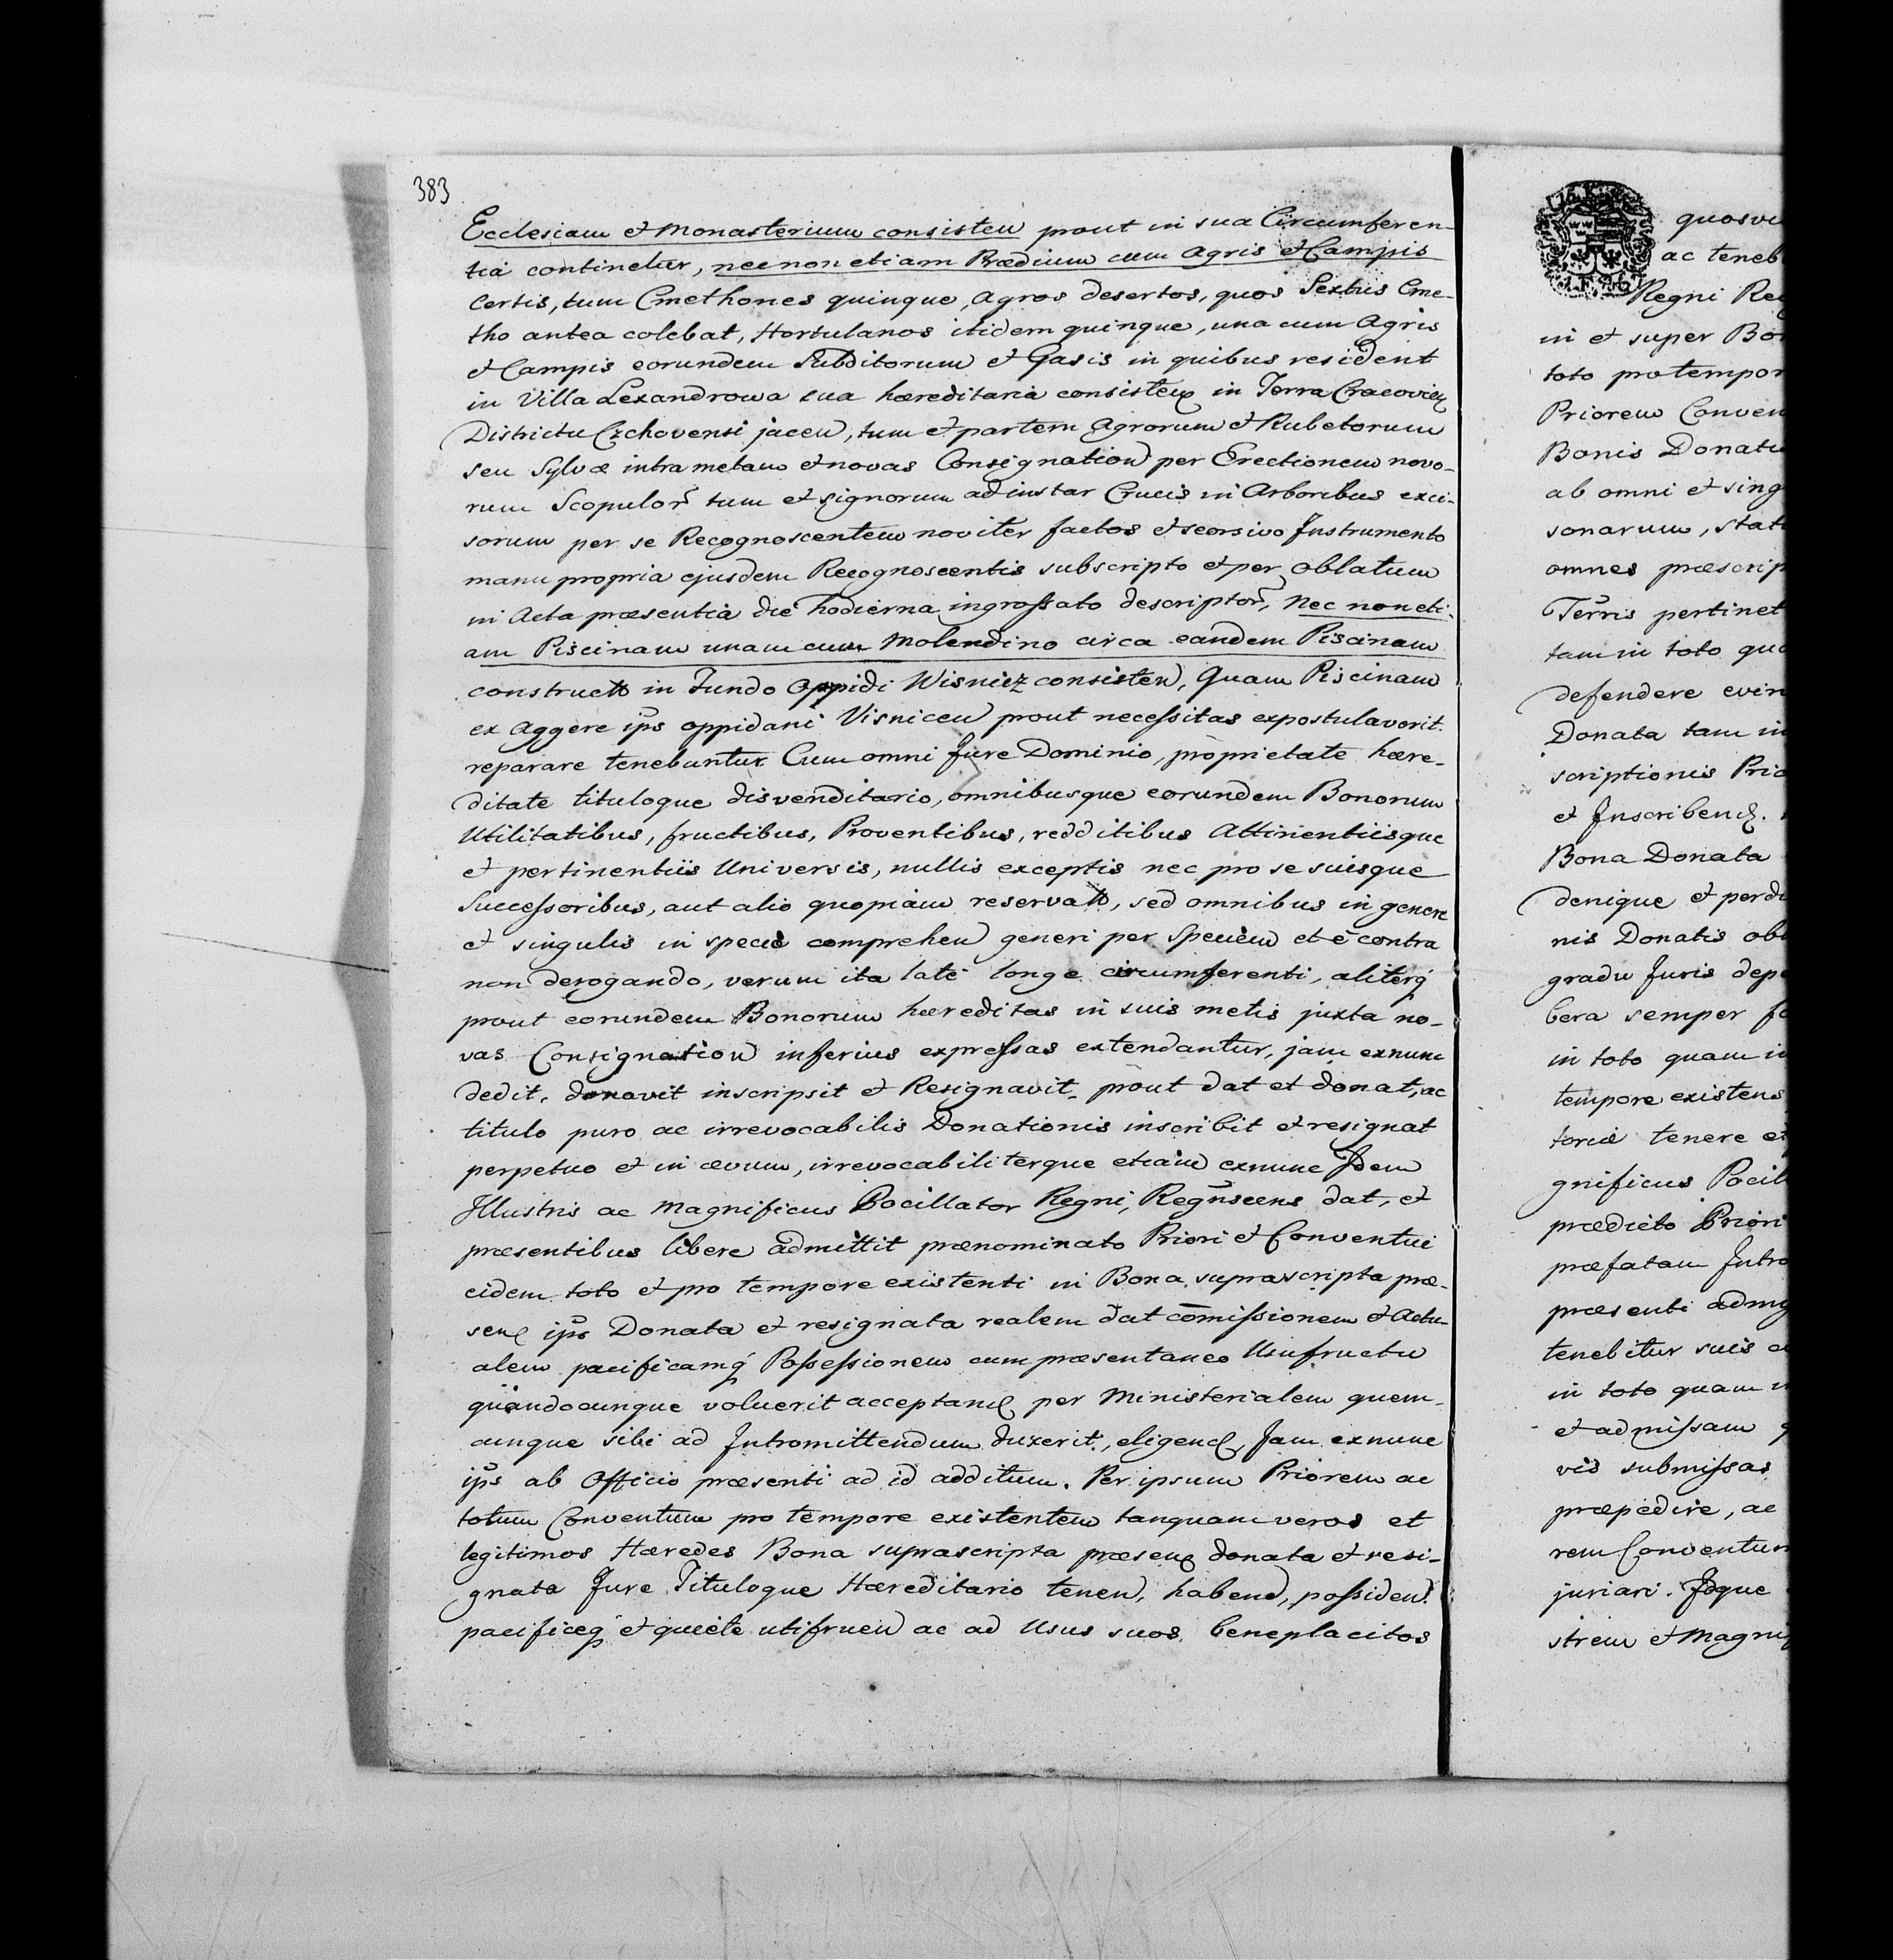 383
Ecclesiam et Monasterium consisteñ prout in sua Circumferen-
tia continetur, nec non etiam Prædium cum Agris et Campis
certis, tum Cmethones quinque, Agros desertos, quos Sextus Cme-
tho antea colebat, Hortulanos itidem quinque, una cum Agris
et Campis eorundem Subditorum et Gasis in quibus resident
in Villa Lexandrowa sua hæreditaria consisteñ in Terra Cracovieñ
Districtu Czchovensi jaceñ, tum et partem Agrorum et Rubetorum
seu Sylvæ intra metam et novas Consignatioñ per Erectionem novo-
rum Scopulor̃ tum et signorum ad instar Crucis in Arboribus exci-
sorum per se Recognoscentem noviter factos et seorsivo Instrumento
manu propria ejusdem Recognoscentis subscripto et per oblatum
in Acta præsentia die hodierna ingrossato descriptor̃, Nec non eti-
am Piscinam unam cum Molendino circa eandem Piscinam
constructo in Fundo Oppidi Wisnicz consisteñ, Quam Piscinam
ex Aggere ips̃ oppidani Visniceñ prout necessitas expostulaverit.
reparare tenebuntur. Cum omni Jure Dominio, proprietate hære-
ditate tituloque disvenditario, omnibusque eorundem Bonorum
Utilitatibus, fructibus, Proventibus, redditibus Attinentiisque
et pertinentiis Universis, nullis exceptis nec pro se suisque
Successoribus, aut alio quopiam reservato, sed omnibus in genere
et singulis in specie compreheñ generi per Speciem et è contra
non derogando, verum ita late longe circumferenti, aliterq́
prout eorundem Bonorum hæreditas in suis metis juxta no-
vas Consignatioñ inferius expressas extendantur, jam exnunc
dedit, donavit inscripsit et Resignavit, prout dat et donat, ac
titulo puro ac irrevocabilis Donationis inscribit et resignat
perpetuo et in ævum, irrevocabiliterque etiam exnunc Idem
Illustris ac Magnificus Pocillator Regni, Regñscens dat, et
præsentibus libere admittit prænominato Priori et Conventui
eidem toto et pro tempore existenti in Bona suprascripta præ-
señ ips̃ Donata et resignata realem dat com̃issionem et Actu-
alem pacificamq́ Possessionem cum præsentaneo Usufructu
quandocunque voluerit acceptanđ per Ministerialem quem-
cunque sibi ad Intromittendum duxerit, eligenđ, Jam exnunc
ips̃ ab Officio præsenti ad id additum. Per ipsum Priorem ac
totum Conventum pro tempore existentem tanquam veros et
legitimos Hæredes Bona suprascripta præseñ donata et resi-
gnata Jure Tituloque Hæreditario teneñ, habenđ, possideñ.
pacificeq́ et quiete utifrueñ ac ad Usus suos beneplacitos
ac
Regni
in et super
toto pro
Priorem
Bonis
ab omni et
sonarum,
omnes
Terris pertinet
tam in toto
defendere
Donata tam
scriptionis
et Inscribenđ.
Bona Donata
denique et
nis Donatis
gradu Juris
bera semper
in toto quam
tempore existens
toriæ tenere
gnificus
prædicto Priori
præfatam
præsenti
tenebitur suis
in toto quam
et admissam
vis submissas
præpedire, ac
rem
juriari. Idque
strem et